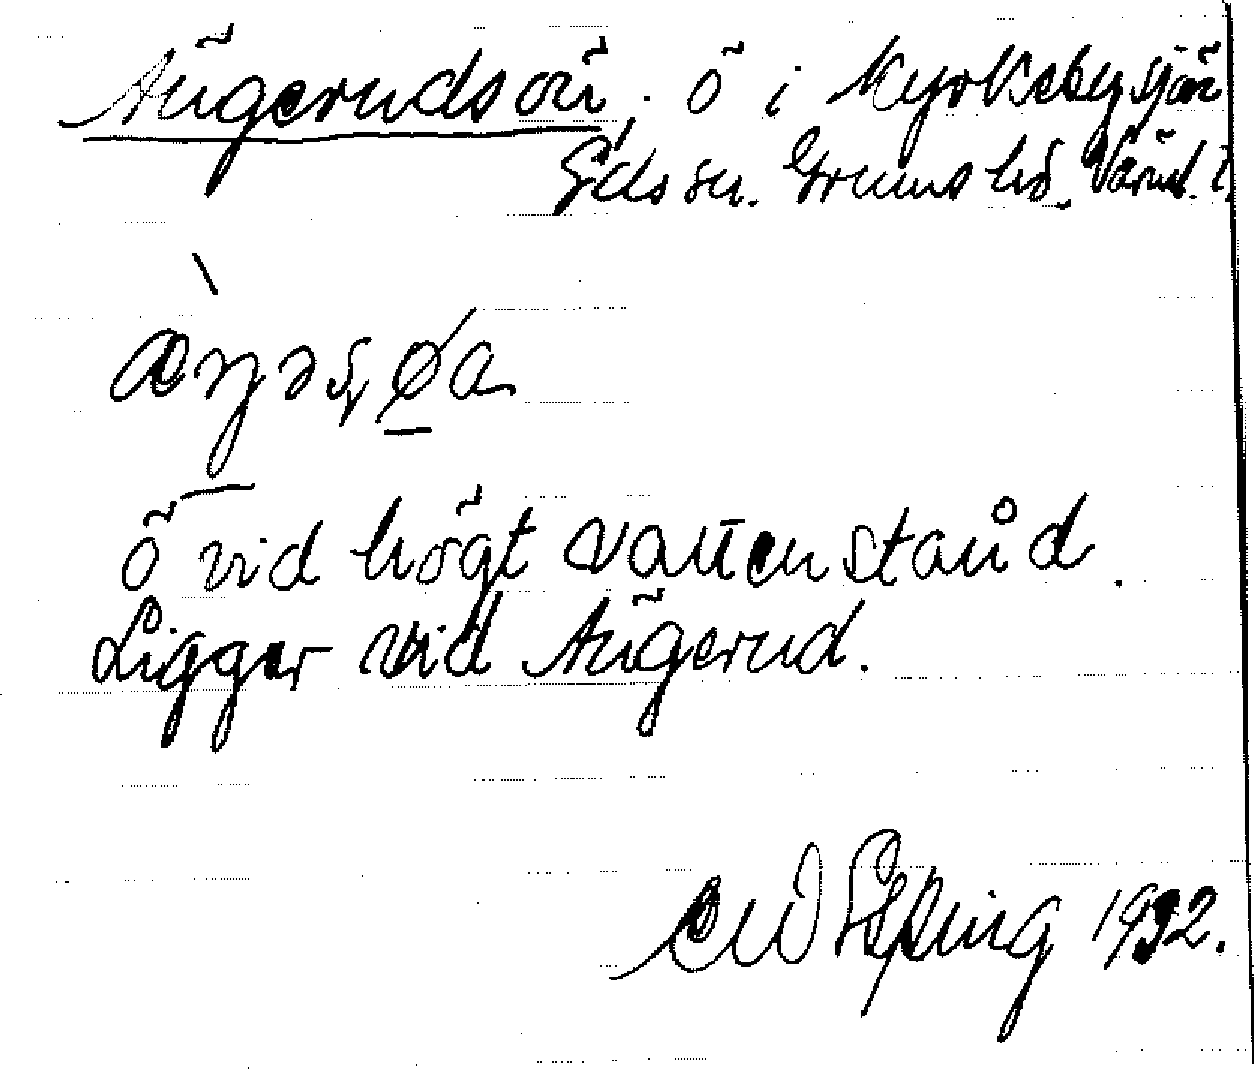 Ängerudsön, ö i Kyrkebysjön
Eds sn. Grums hd. Värml. l.
æ̀ŋəʂøa
Ö vid högt vattenstånd.
Ligger vid Ängerud.
1932.